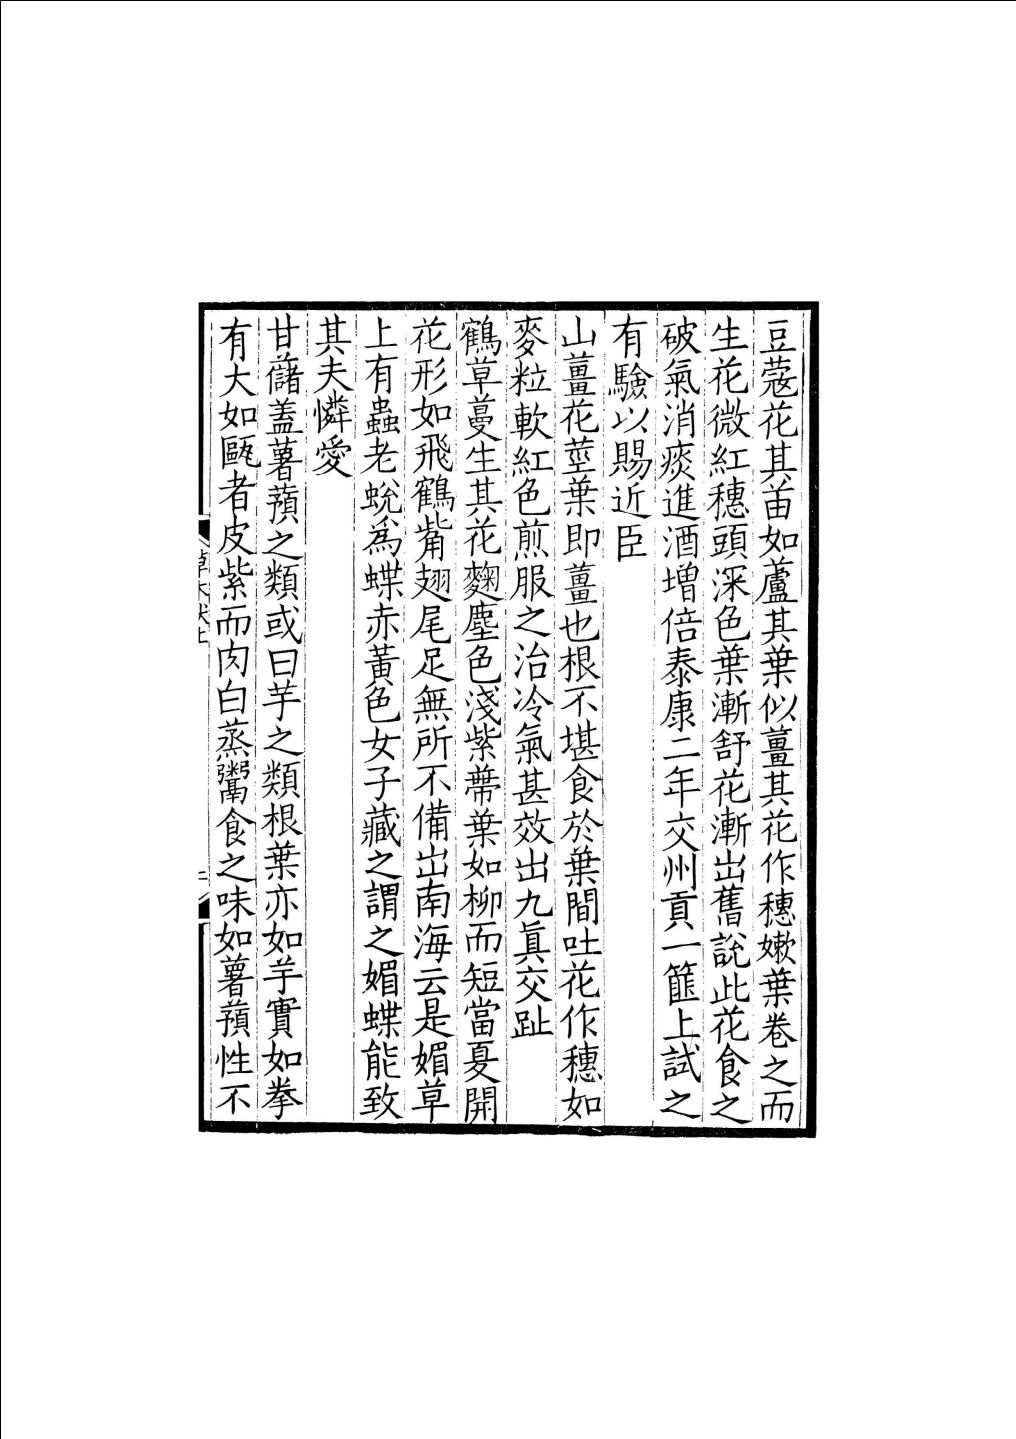 豆蔻花其苖如蘆其葉似薑其花作穗嫰葉卷之而
生花微紅穗頭深色葉漸舒花漸岀舊說此花食之
破氣消痰進酒增倍泰康二年交州貢一篚上試之
有驗以賜近臣
山薑花莖葉即薑也根不堪食於葉間吐花作穗如
麥粒軟紅色煎服之治冷氣甚效出九眞交趾
鶴草蔓生其花麴塵色淺紫蔕葉如柳而短當夏開
花形如飛鶴觜翅尾足無所不備岀南海云是媚草
上有蟲老蛻爲蝶赤黃色女子藏之謂之媚蝶能致
其夫憐愛
甘藷盖薯蕷之類或曰芋之類根葉亦如芋實如拳
有大如甌者皮紫而肉白蒸鬻食之味如薯蕷性不
草木狀上